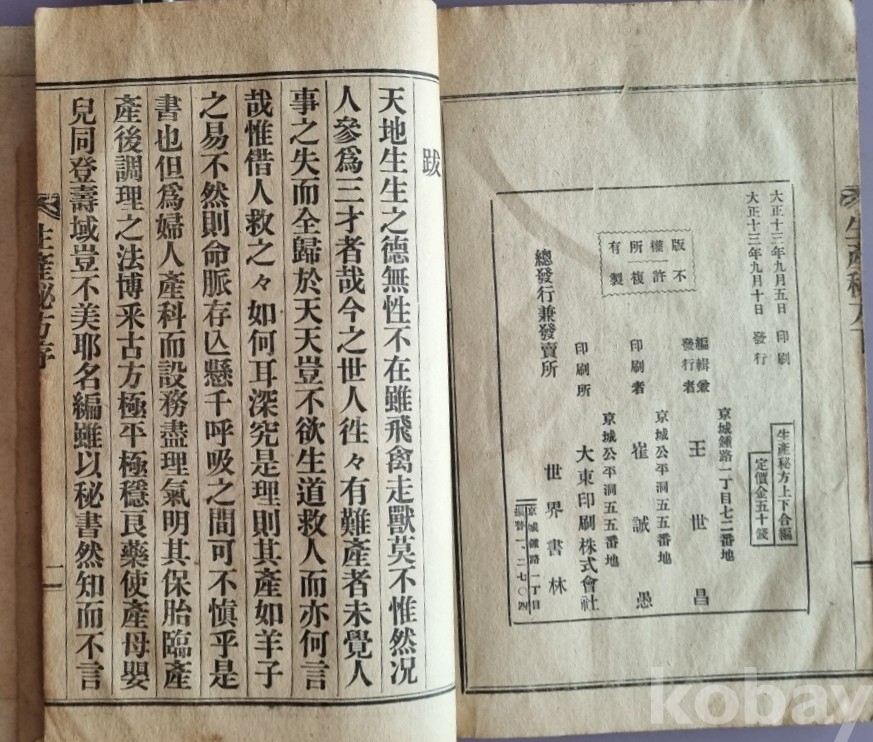 大正十三年九月五日 印刷
大正十三年九月十日 發行
生產秘方上下合編
定價金五十錢
京城鍾路一丁目七二番地
編輯兼發行者 王世昌
京城公平洞五五番地
印刷者 崔誠愚
京城公平洞五五番地
印刷所 大東印刷株式會社
版權所有
不許複製
總發行兼發賣所 世界書林
京城鍾路一丁目
振替一、二七〇四
跋
天地生生之德無性不在雖飛禽走獸莫不惟然況
人參爲三才者哉今之世人往々有難產者未覺人
事之失而全歸於天天豈不欲生道救人而亦何言
哉惟借人救之々如何耳深究是理則其產如羊子
之易不然則命脈存亾懸千呼吸之間可不慎乎是
書也但爲婦人產科而設務盡理氣明其保胎臨產
產後調理之法博釆古方極平極穩良藥使產母嬰
兒同登壽域豈不美耶名編雖以秘書然知而不言
生產秘方
二
kobay